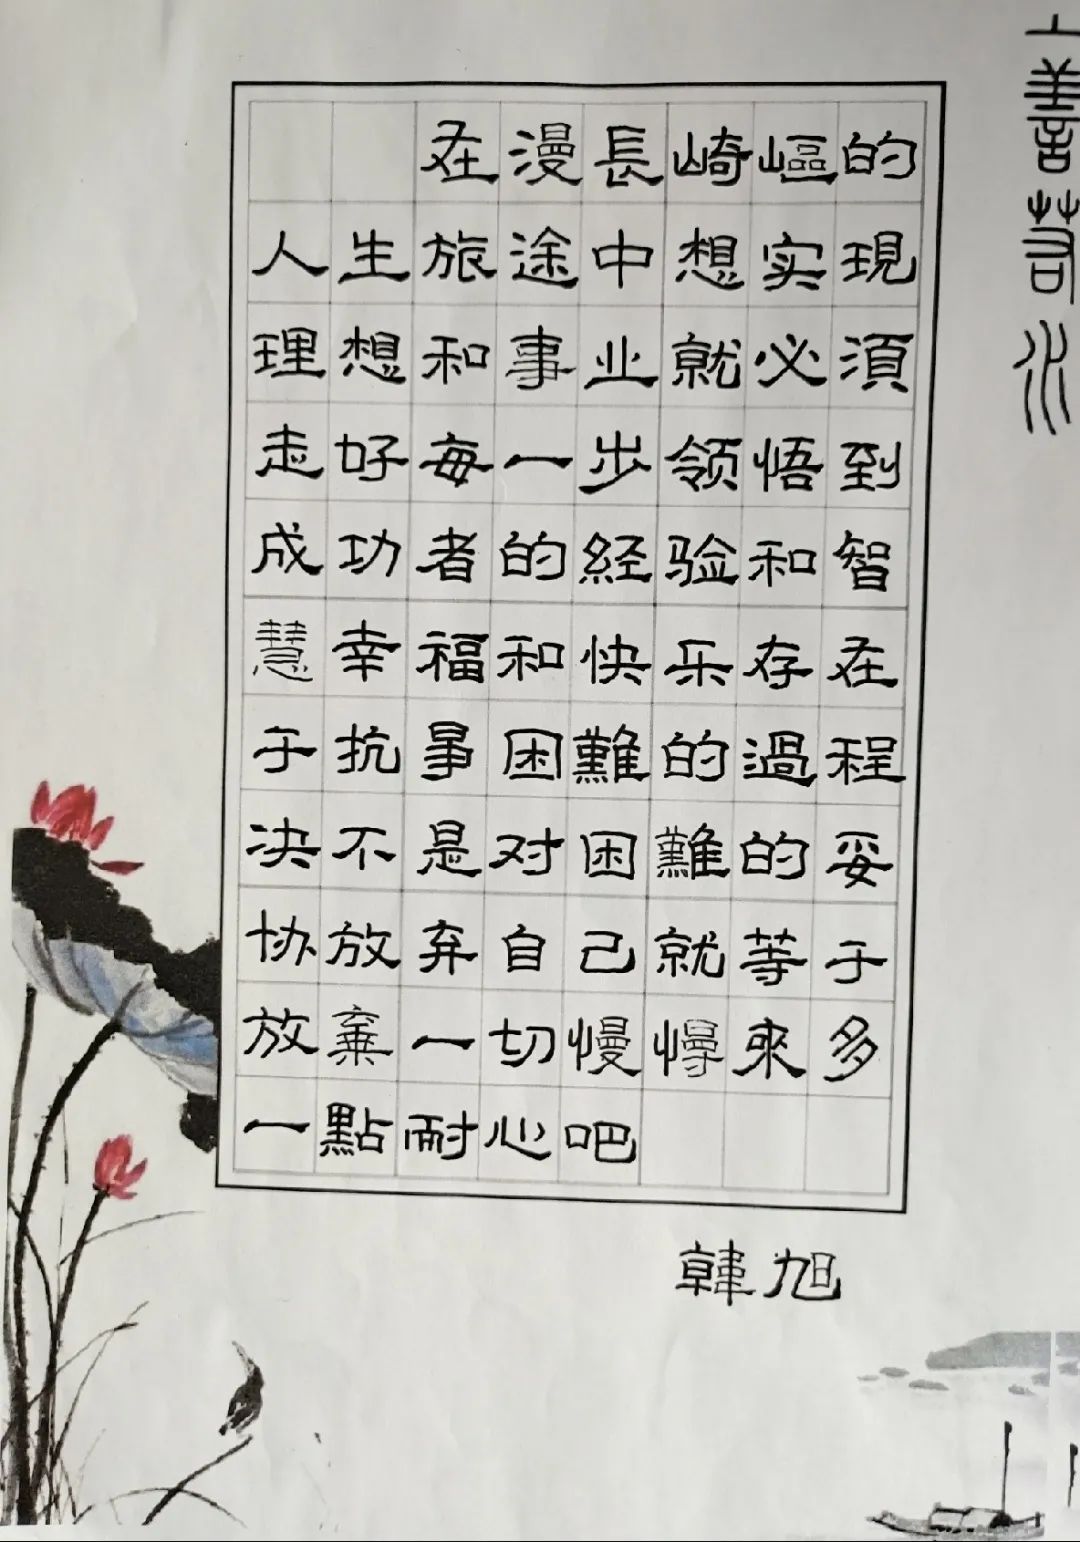 在漫長崎嶇的
人生旅途中想实現
理想和事业就必須
走好每一步领悟到
成功者的経验和智
慧幸福和快乐存在
于抗事困難的過程
决不是对困難的妥
协放弃自己就等于
放棄一切慢慢來多
一點耐心吧
韓旭
上善若水